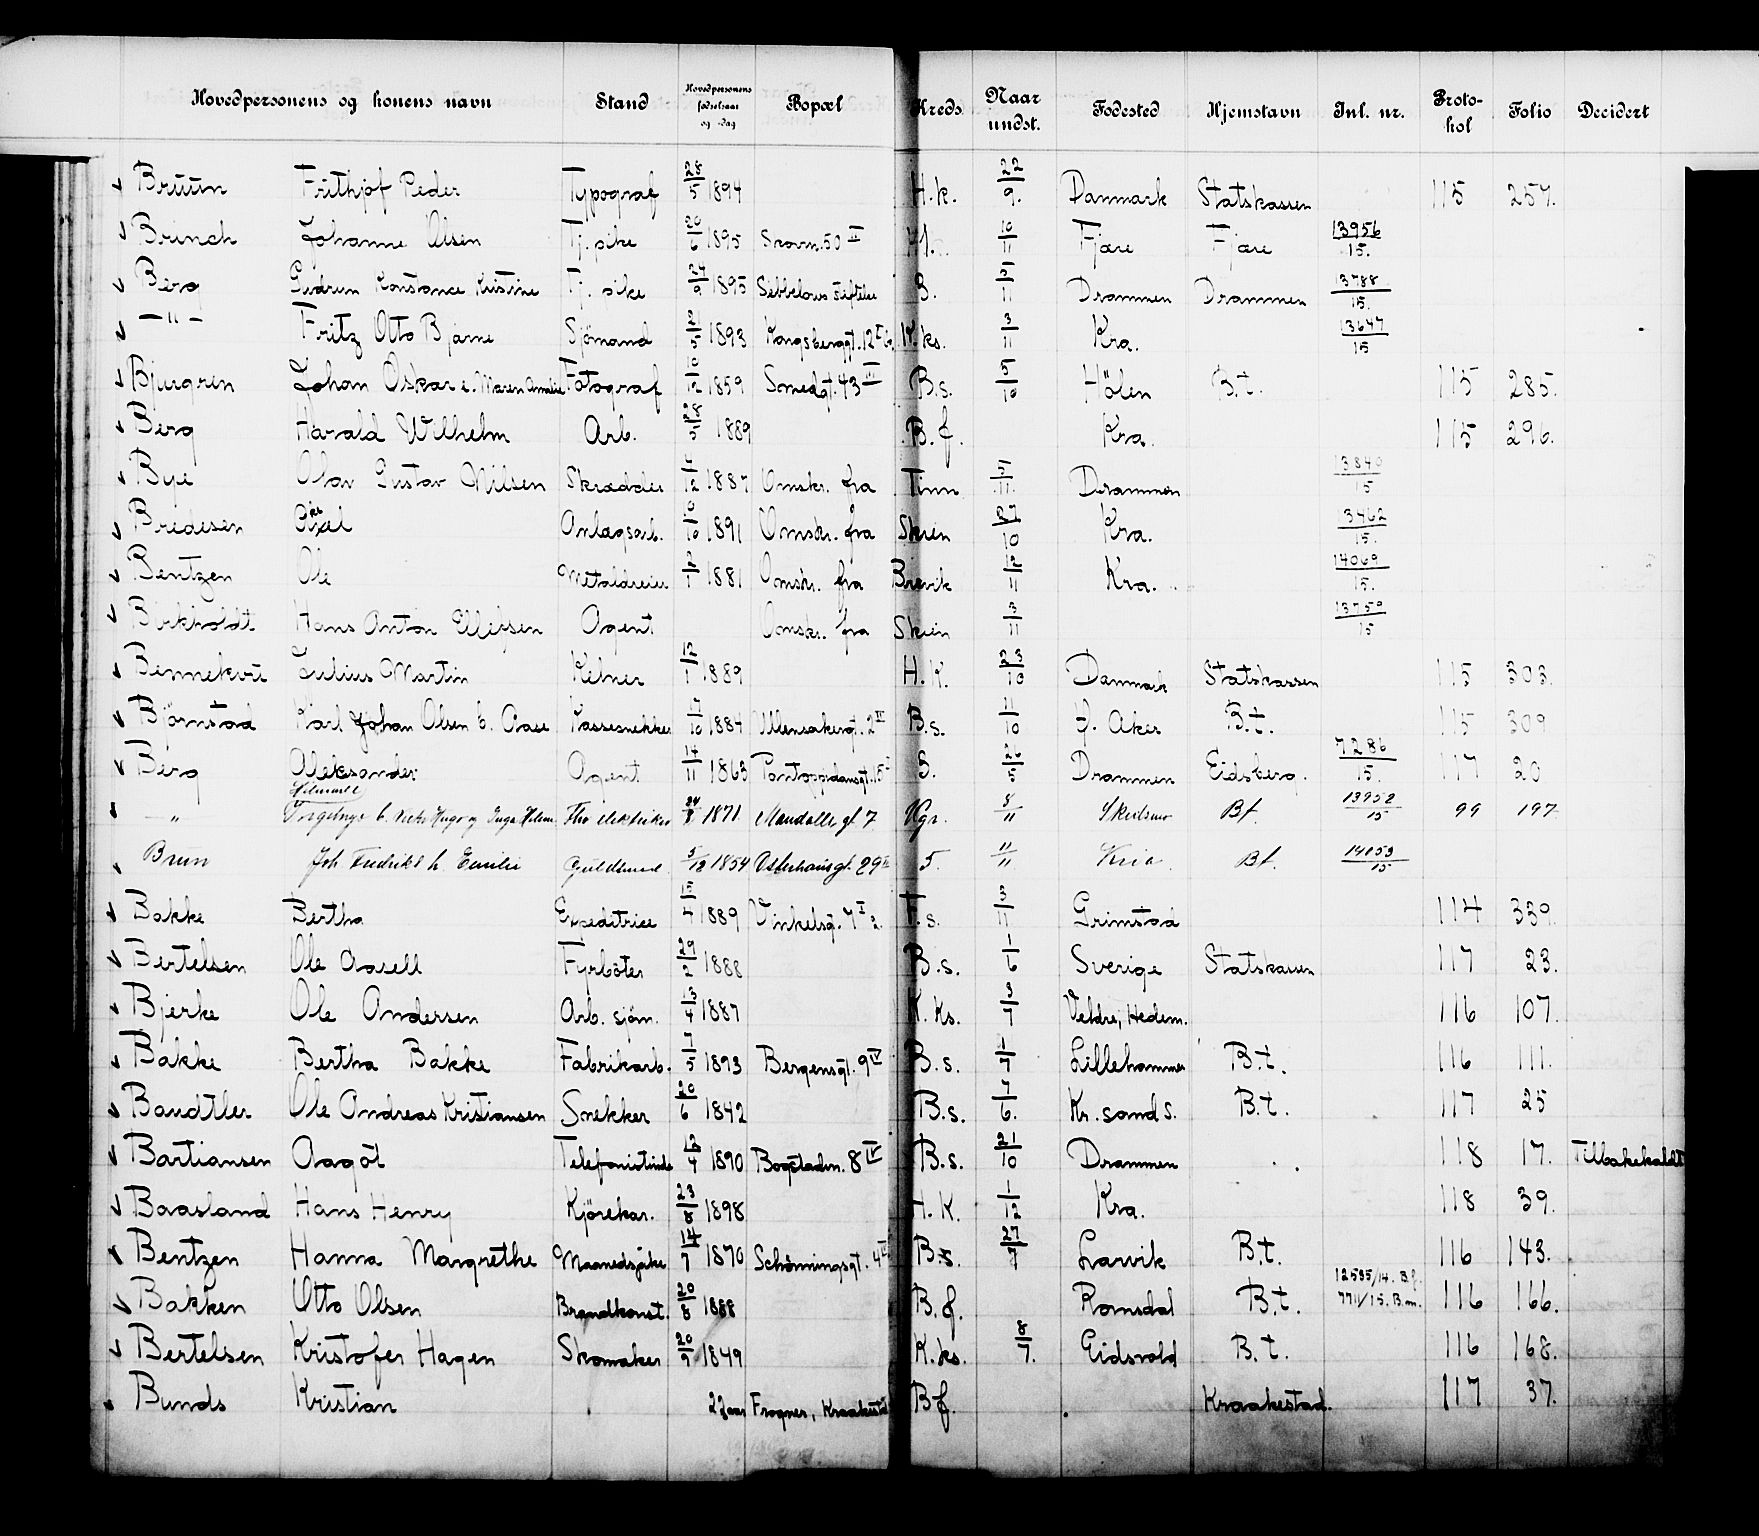 Hovedpersonens og konens navn Stand Hovedpersonens fødselsaar og -dag Bopæl Kreds. Naar undst. Fødested Hjemstavn Inl. nr. Protokol Folio Decidert
Bruun Frithjof Peder Typograf 28/5 1894 H.k. 22/9. Danmark Statskassen 115 257.
Brinch Johanne Olsen Tj. pike 20/6 1895 Skovvn. 50 II 10/11 Fjære Fjære 13956/15.
Berg Gudrun Konstance Kristine Tj. pike 24/9 1895 Sebbelows stiftelse B. 5/11 Drammen Drammen 13788/15.
— " — Fritz Otto Bjarne Sjömand 21/5 1893 Kongsberggt. 12 K.ks. 3/11 Kra. 13647/15
Bjurgren Johan Oskar e. Maren Amalie Fotograf 10/12 1859 Smedgt. 43 III B.s. 5/10 Hölen B.t. 115 285.
Berg Harald Wilhelm Arb. 28/5 1889 B.f. Kra. 115 296.
Bye Olav Gustav Nilsen Skrædder 1887 Omskr. fra Tinn 5/11. Drammen 13840/15
Bredesen Aksel Anlægsarb. 10/10 1891 Omskr. fra Skien 27/10 Kra. 13462/15.
Bentzen Ole Metaldreier 2/1 1881 Omskr. fra Brevik 12/11 Kra. 14069/15.
Birkholdt Hans Anton Ellefsen Agent Omskr. fra Skien 3/11 13750/15
Bennekvie Julius Martin Kelner 12/1 1889 H.K. 23/10 Danmark Statskassen 115 303.
Björnstad Karl Johan Olsen b. Aase Kassesnekker 17/10 1884 Ullensakergt. 2 IV B.s. 11/10 Ö. Aker B.t. 115 309
Berg Aleksander 14/11 1863 Agent Pontoppidansgt. 15 B. 26/5 Drammen Eidsberg. 7286/15. 117 20
" Hilmart 24/8 1871 Mandalls gt 7 Vgr. 8/11 Skedsmo Bt. 13952/15 99 197
Brun Joh Fredrikk h. Emilie Guldsmed 5/12 1854 Osterhausgt. 29 5. 11/11 Kria Bt. 14053/15
Bakke Bertha Expeditrice 15/4 1889 Vinkelsgt. 7 I 2. F.s. 3/11 Grimstad 114 339.
Bertelsen Ole Axsell Fyrböter 29/2 1888 B.s. 1/6 Sverige Statskassen 117 23.
Bjerke Ole Andersen Arb. sjöm. 13/4 1887 K.Ks. 3/7 Veldre, Hedem. 116 107.
Bakke Bertha Bakke Fabrikarb. 7/5 1893 Bergensgt. 9 IV B.s. 1/7 Lillehammer B.t. 116 111.
Bandtler Ole Andreas Kristiansen Snekker 20/6 1842 B.s. 7/6. Kr.sand S. B.t. 117 25
Bartiansen Aagot Telefonistinde 12/4 1890 Bogstadvn. 8 IV B.s. 21/10 Drammen 118 17. Tilbakekaldt
Baasland Hans Henry Kjörekar. 23/8 1898 H.K. 1/12 Kra. 118 39.
Bentzen Hanna Margrethe Maanedspike 14/7 1870 Schönningsgt. 4 II B.s. 27/7 Larvik B.t. 116 143.
Bakken Otto Olsen Brandkonst. 20/8 1888 B.f. Romsdal B.t. 12535/14. B.f. 7711/15. B.m. 116 166.
Bertelsen Kristofer Hagen Skomaker 20/9 1849 K.ks. 8/7. Eidsvold B.t. 116 168.
Bunds Kristian 22 aar Frogner, Kraakestad B.f. Kraakestad. 117 37.